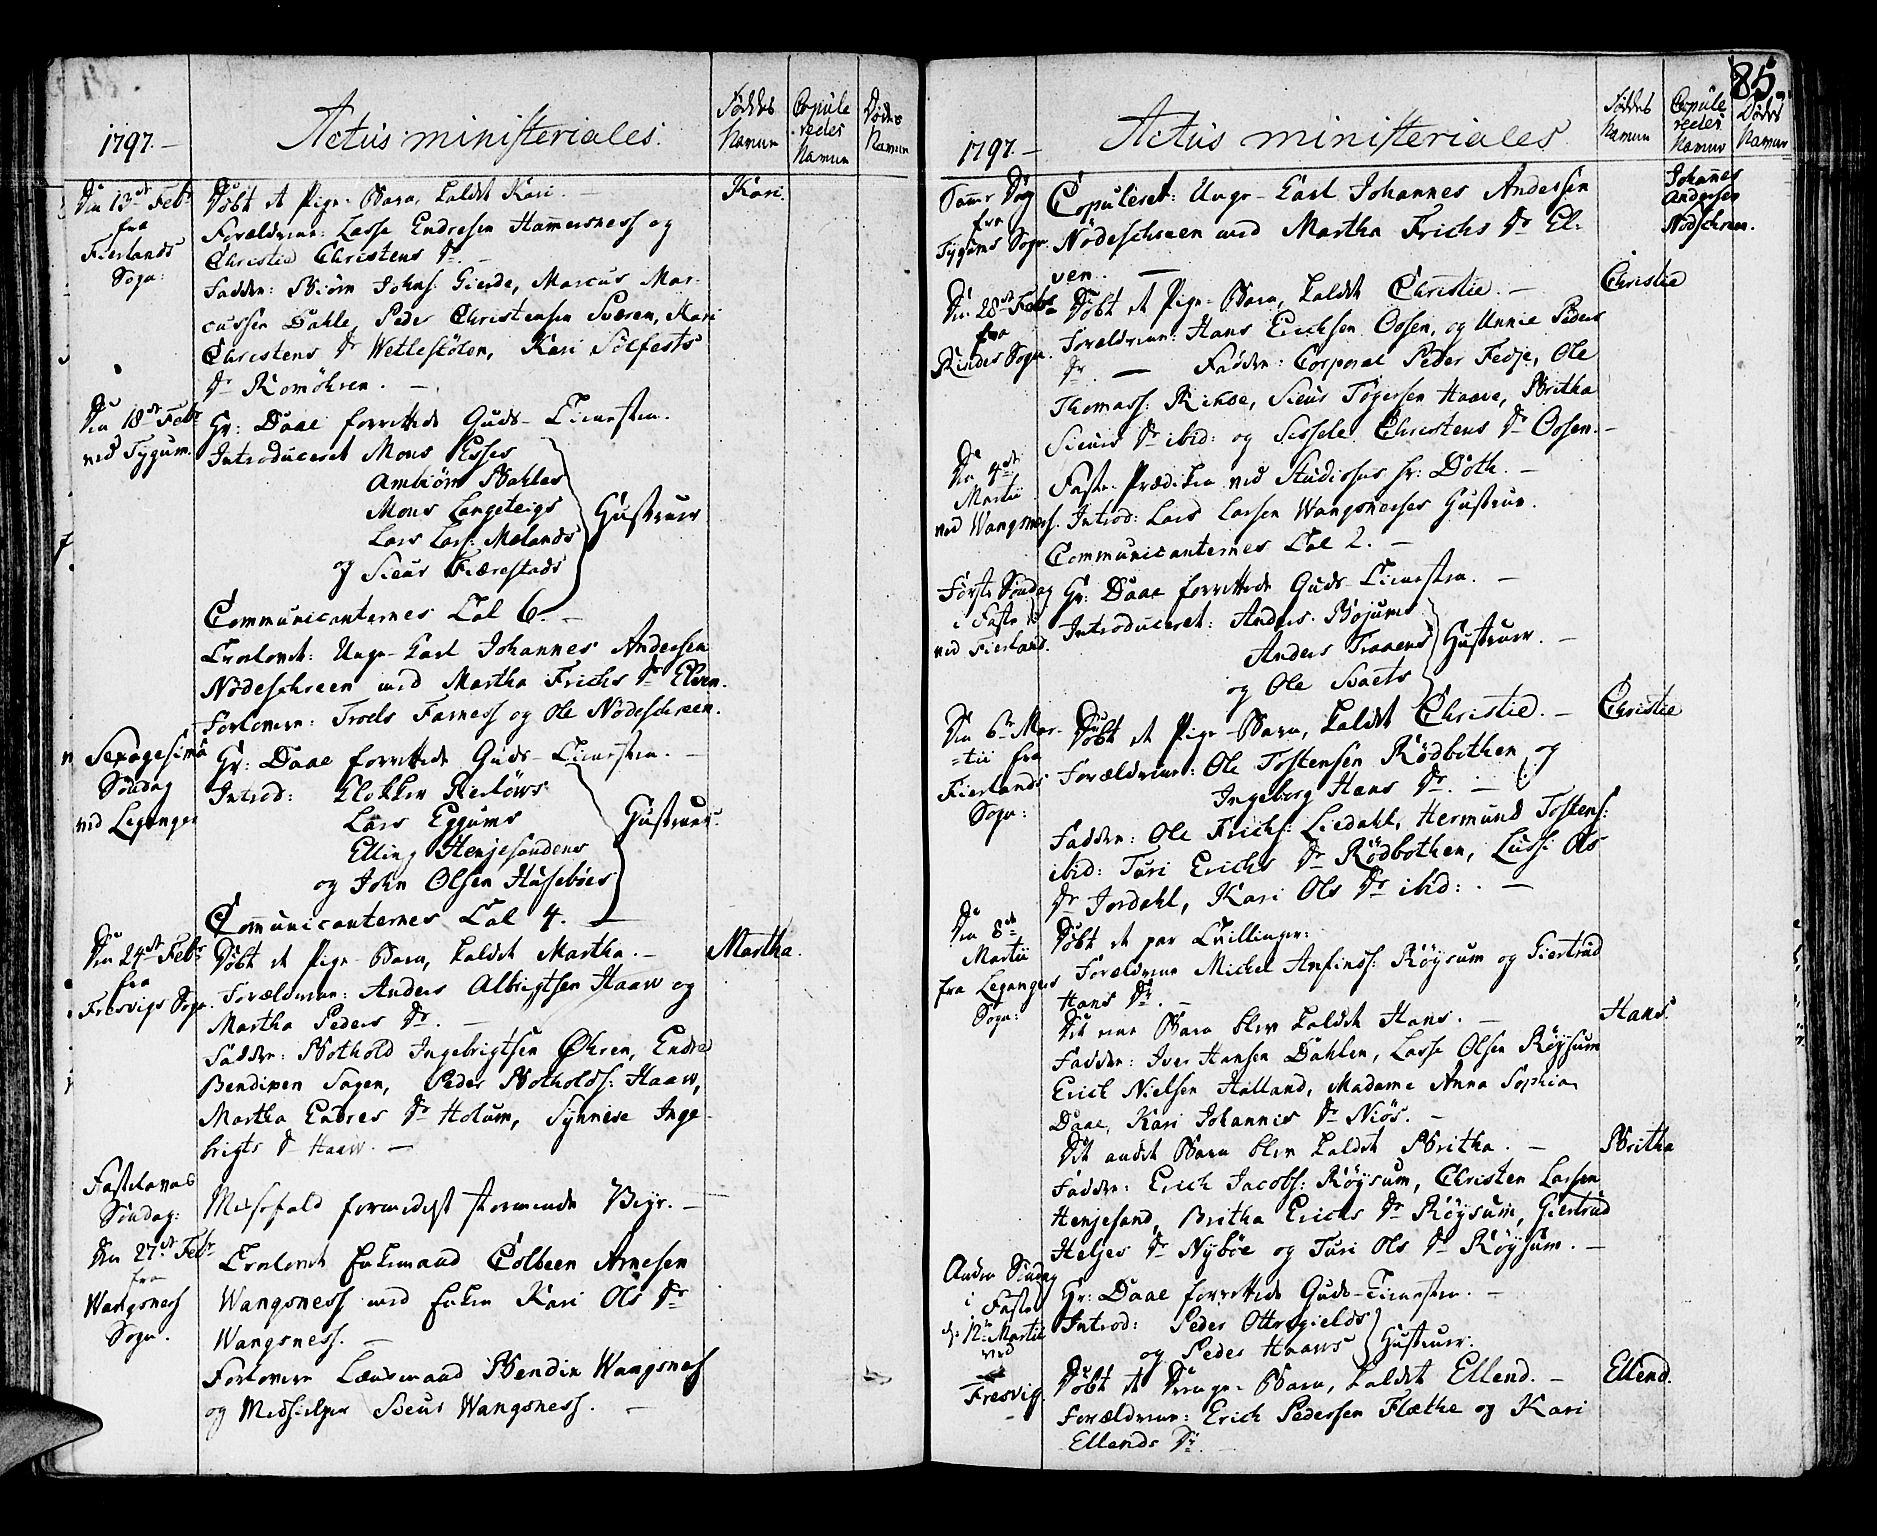 1797.
Actus ministeriales.
Føddes Navne
Copuleredes Navne
Dødes Navne
Den 13de Febr fra Fierlands Sogn:
Døbt et Pige-Barn, kaldet Kari. —
Kari.
Forældrene: Lasse Endresen Hammersness og
Christie Christens Dr. —
Faddere: Biörn Johns: Gierde, Marcus Mar-
cussen Dahle, Peder Christensen Sværen, Kari
Christens Dr Wettlestölen, Kari Sölfests
Dr Romöhren. —
Den 18de Febr ved Tygum.
Hr: Daae forrettede Guds-Tienesten.
Introduceret Mons Esses
Ambiörn Bahles
Mons Langeteigs
Lars Lars: Mælands
og Siur Fiærestads
Hustruer
Communicanternes Tal 6. —
Trolovet: Unge-Karl Johannes Andersen
Nödeschreen med Martha Frichs Dr Elven.
Forlovere: Troels Farness og Ole Nödeschreen.
Sexagesima Søndag ved Leganger
Hr: Daae forrettede Guds-Tienesten. —
Introd: Klokker Reelöws
Lars Eggums
Elling Henjesandens
og John Olsen Huseböes
Hustruer.
Communicanternes Tal 4. —
Den 24de Febr fra Fresvigs Sogn.
Døbt et Pige-Barn, kaldet Martha. —
Martha.
Forældrene: Anders Albrigtsen Haaw og
Martha Peders Dr. —
Faddere: Bothold Ingebrigtsen Öhren, Endre
Bendixen Sagen, Peder Botholds: Haaw,
Martha Endres Dr Holum, Synneve Inge-
brigts Dr Haaw. —
Fastelavns Søndag:
Messefald formedelst stormende Veyr. —
Den 27de Febr fra Wangsness Sogn.
Trolovet Enkemand Colbeen Arnesen
Wangsness med Enken Kari Ols Dr
Wangsness. —
Forlovere Lænsmand Bendix Wangsness
og Medhielper Siur Wangsness. —
85.
1797. —
Actus ministeriales
Føddes Navne
Copuleredes Navne
Dødes Navne
Samme Dag fra Tygums Sogn.
Copuleret: Unge-Karl Johannes Andersen
Nödeschreen med Martha Frichs Dr El:
ven. —
Johannes Andersen Nödschreen.
Den 28de Febr fra Rinde Sogn.
Døbt et Pige-Barn, kaldet Christie. —
Christie
Forældrene: Hans Erichsen Oosen, og Unnie Peders
Dr. — Faddere: Corporal Peder Fedje, Ole
Thomass: Rinde, Siur Tögersen Haave, Britha
Siurs Dr ibid: og Sissele Christens Dr Oosen. —
Den 4de Martii ved Wangsness.
Faste-Prædiken ved Studiosus Hr: Döth. —
Introd: Lars Larsen Wangsnesses Hustrue.
Communicanternes Tal 2. —
Første Søndag i Faste ved Fierland.
Hr: Daae forrettede Guds Tienesten. —
Introduceret: Anders Böjums
Anders Traaens
og Ole Svaets
Hustruer. —
Den 6te Mar-
=tii fra Fierlands Sogn:
Døbt et Pige-Barn, kaldet Christie. —
Christie
Forældrene: Ole Tostensen Rödbothen og
Ingeborg Hans Dr. —
Faddere: Ole Frichs: Liedahl, Hermund Tostens:
ibid: Turi Erichs Dr Rödbothen, Lussi Ols
Dr Jordahl, Kari Ols Dr ibid: . —
Den 8de Martii fra Legangers Sogn:
Døbt et par Tvillinger:
Forældrene Michel Anfinds: Röysum og Giertrud
Hans Dr. —
Det ene Barn blev kaldet Hans. —
Hans.
Faddere: Iver Hansen Dahlen, Lasse Olsen Röysum
Erich Nielsen Halland, Madame Anna Sophia
Daae, Kari Johannis Dr Niös. —
Det andet Barn blev kaldet Britha. —
Britha
Faddere: Erich Jacobs: Röysum, Christen Larsen
Henjesand, Britha Erichs Dr Röysum, Giertrud
Heljes Dr Nyböe og Turi Ols Dr Röysum. —
Anden Søndag i Faste d: 12te Martii ved Fresvig.
Hr: Daae forrettede Guds-Tienesten. —
Introd: Peder Ottregields
og Peder Haaws
Hustruer.
Døbt et Drenge-Barn, kaldet Ellend. —
Ellend.
Forældrene: Erich Pedersen Flæthe og Kari
Ellends Dr. —